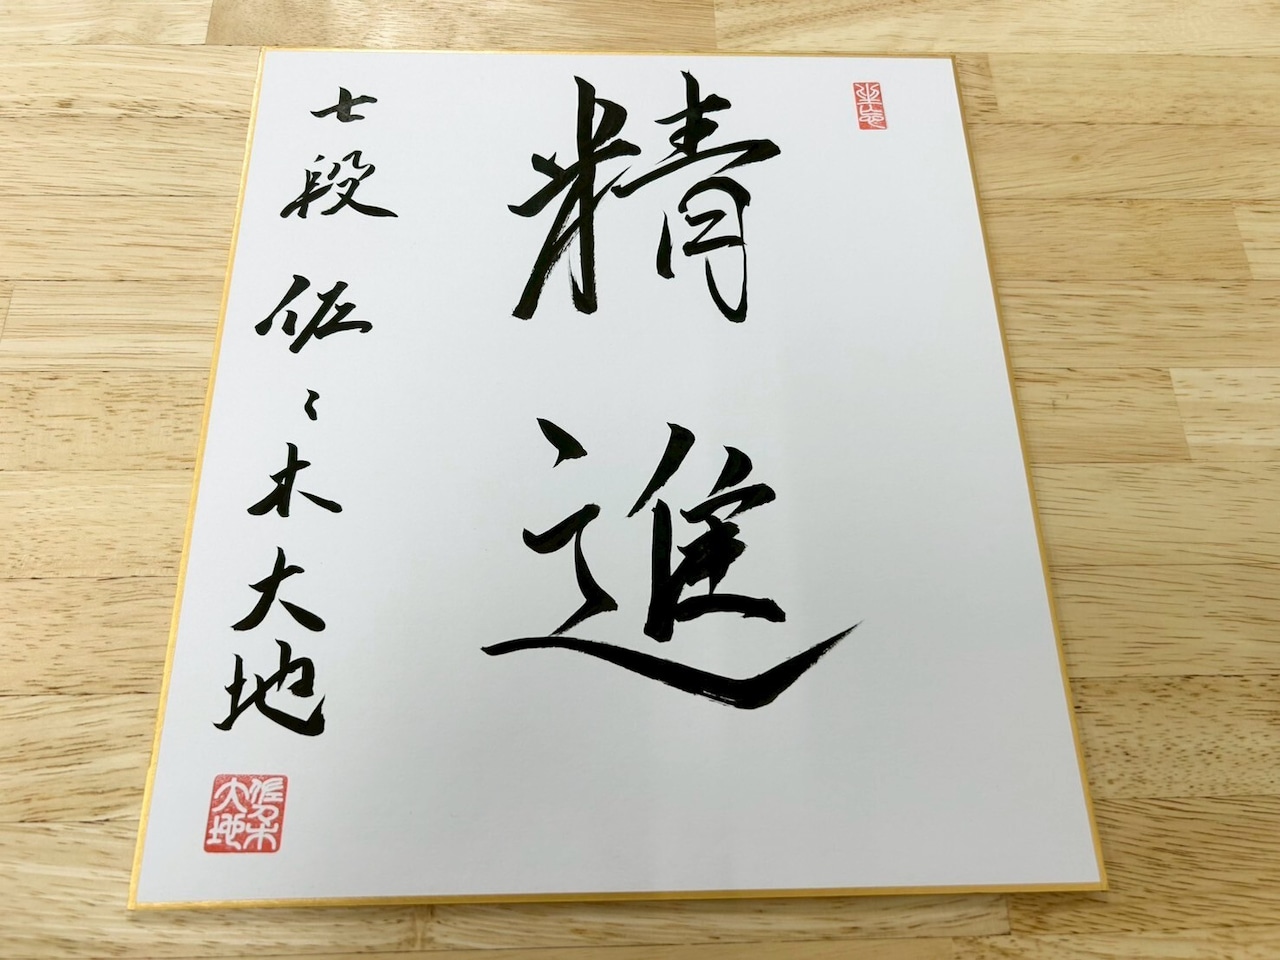 精進
七段 佐々木大地
佐々木
大地